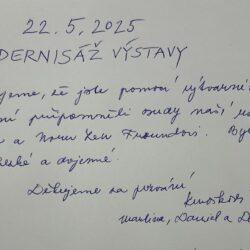 22. 5. 2025
DERNISÁŽ VÝSTAVY
jeme, že jste pomocí výtvarní
připomněli osudy naší
a Noru Freundovi. By
a dojemné.
Děkujeme za pozvání
Martina, Daniel a D